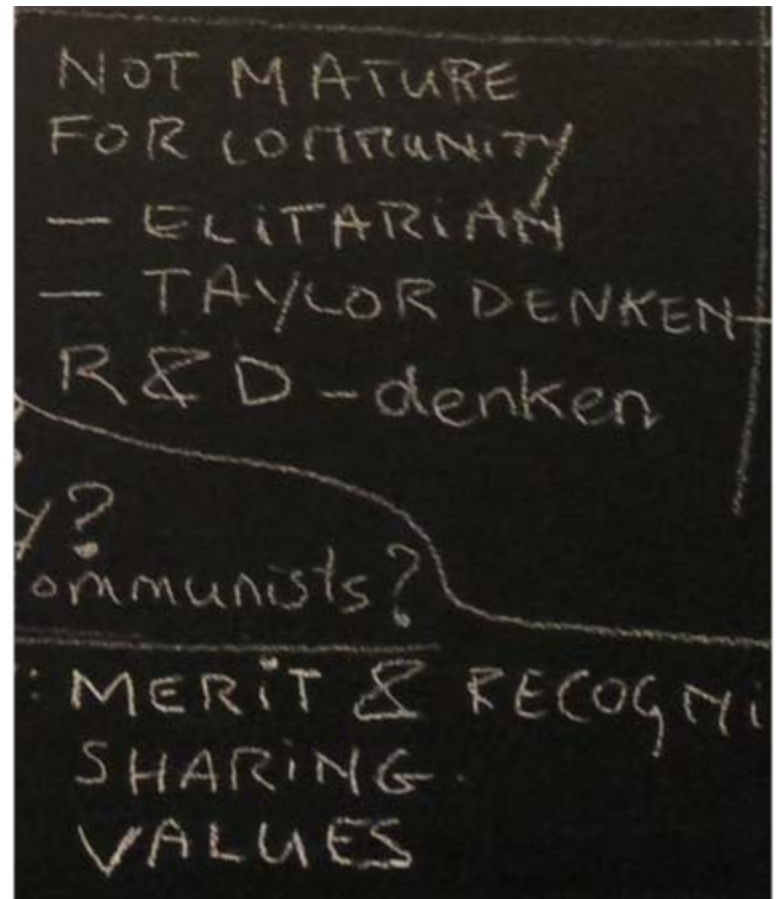 NOT MATURE
FOR COMMUNITY
— ELITARIAN
— TAYLOR DENKEN
R&D-denken
y?
ommunists?
: MERIT & RECOGNI
SHARING
VALUES